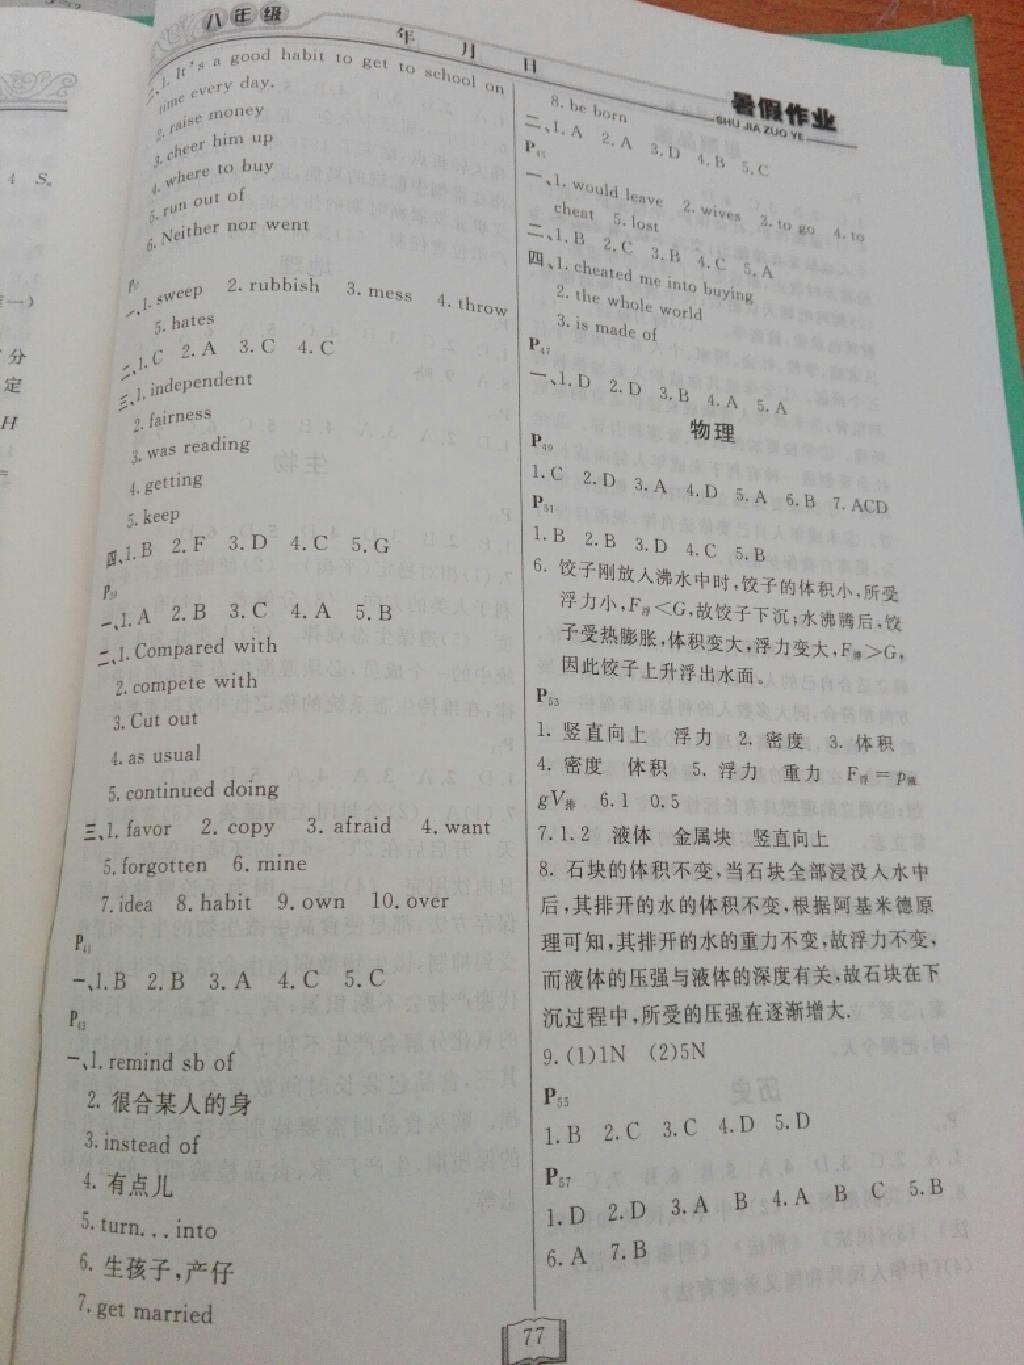 八年级
年 月 日
暑假作业
SHU JIA ZUO YE
二、1. It's a good habit to get to school on
time every day.
2. raise money
3. cheer him up
4. where to buy
5. run out of
6. Neither nor went
一、1. sweep 2. rubbish 3. mess 4. throw
5. hates
二、1. C 2. A 3. C 4. C
三、1. independent
2. fairness
3. was reading
4. getting
5. keep
四、1. B 2. F 3. D 4. C 5. G
P39
一、1. A 2. B 3. C 4. A 5. B
二、1. Compared with
2. compete with
3. Cut out
4. as usual
5. continued doing
三、1. favor 2. copy 3. afraid 4. want
5. forgotten 6. mine
7. idea 8. habit 9. own 10. over
P41
一、1. B 2. B 3. A 4. C 5. C
P42
一、1. remind sb of
2. 很合某人的身
3. instead of
4. 有点儿
5. turn...into
6. 生孩子,产仔
7. get married
8. be born
二、1. A 2. A 3. D 4. B 5. C
P45
一、1. would leave 2. wives 3. to go 4. to
cheat 5. lost
二、1. B 2. C 3. B 4. C 5. A
四、1. cheated me into buying
2. the whole world
3. is made of
P47
一、1. D 2. D 3. B 4. A 5. A
物理
P49
1. C 2. D 3. A 4. D 5. A 6. B 7. ACD
P51
1. B 2. B 3. D 4. C 5. B
6. 饺子刚放入沸水中时,饺子的体积小,所受
浮力小,F浮<G,故饺子下沉;水沸腾后,饺
子受热膨胀,体积变大,浮力变大,F浮>G,
因此饺子上升浮出水面。
P53
1. 竖直向上 浮力 2. 密度 3. 体积
4. 密度 体积 5. 浮力 重力 F浮=ρ液
gV排 6. 1 0.5
7. 1.2 液体 金属块 竖直向上
8. 石块的体积不变,当石块全部浸没入水中
后,其排开的水的体积不变,根据阿基米德原
理可知,其排开的水的重力不变,故浮力不变,
而液体的压强与液体的深度有关,故石块在下
沉过程中,所受的压强在逐渐增大.
9. (1)1N (2)5N
P55
1. B 2. C 3. C 4. D 5. D
P57
1. D 2. D 3. A B 4. A B C 5. B
6. A 7. B
77